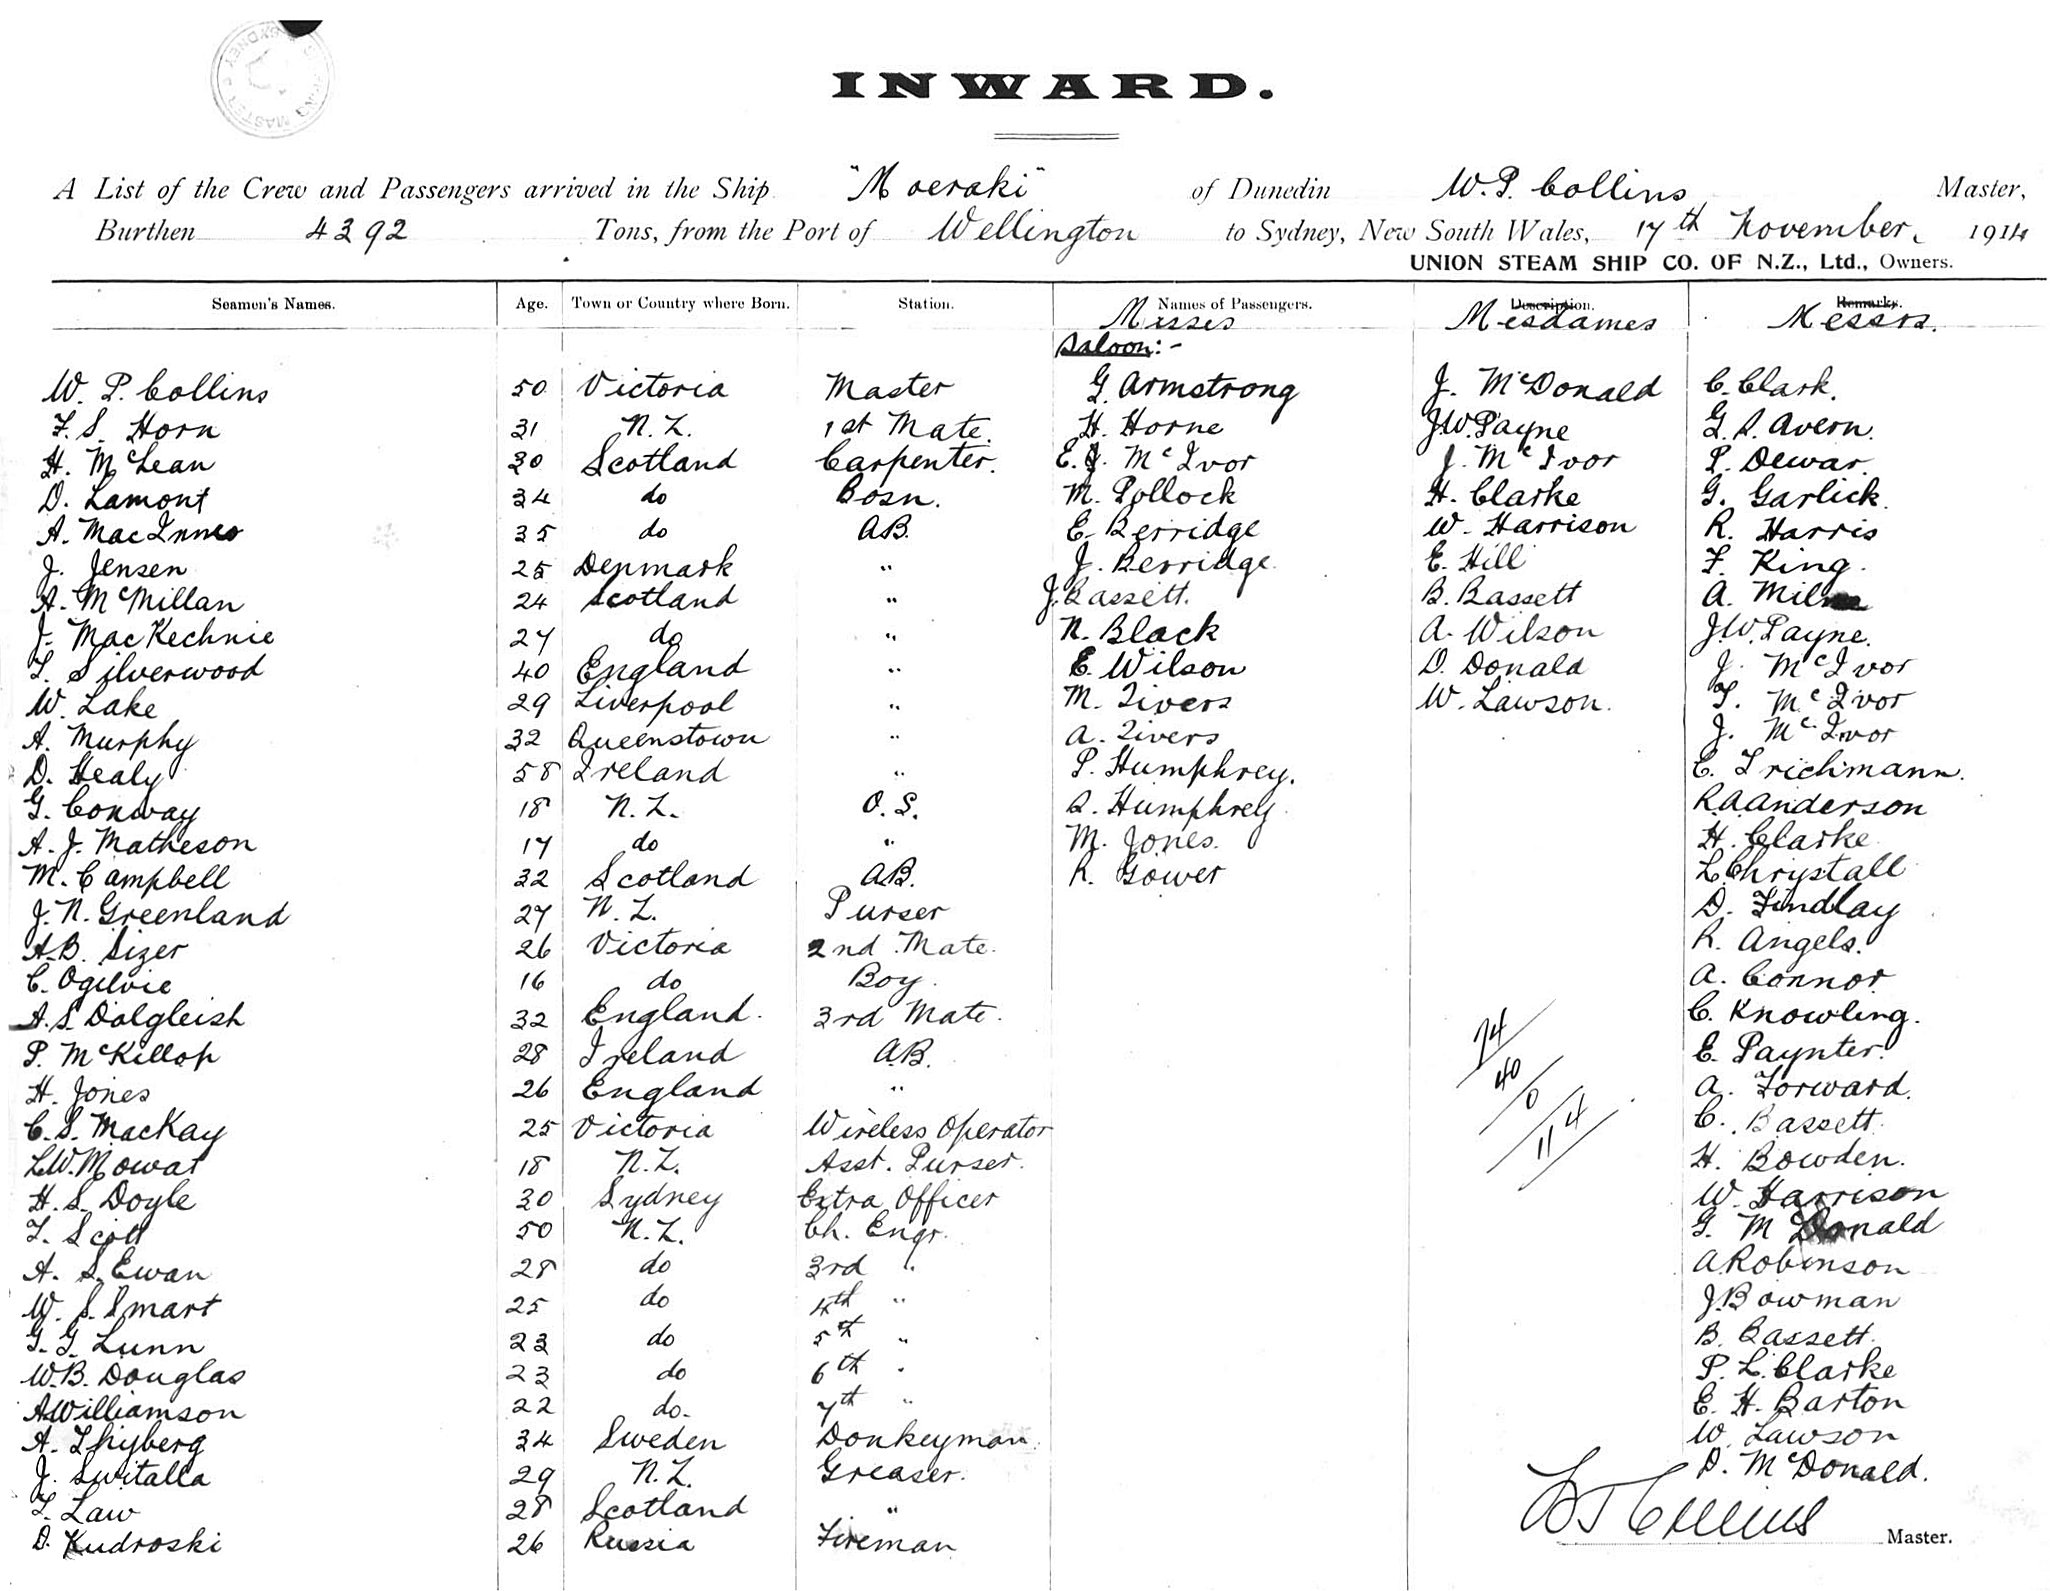 INWARD.
A List of the Crew and Passengers arrived in the Ship "Moeraki" of Dunedin W. P. Collins Master,
Burthen 4392 Tons, from the Port of Wellington to Sydney, New South Wales, 17th November, 1914
UNION STEAM SHIP CO. OF N.Z., Ltd., Owners.
Seamen's Names. Age. Town or Country where Born. Station. Names of Passengers. Description. Remarks.
Misses Mesdames Messrs.
Saloon:-
W. P. Collins 50 Victoria Master G. Armstrong J. McDonald C. Clark.
F. S. Horn 31 N. Z. 1st Mate. H. Horne J.W. Payne G. S. Avern.
H. McLean 30 Scotland Carpenter. E. J. McIvor J. McIvor P. Dewar.
D. Lamont 34 do Bosn. M. Pollock H. Clarke G. Garlick.
A. MacInnes 35 do A.B. E. Berridge W. Harrison R. Harris
J. Jensen 25 Denmark " J. Berridge. E. Hill F. King.
A. McMillan 24 Scotland " J. Bassett. B. Bassett A. Milne
J. MacKechnie 27 do " N. Black A. Wilson J.W. Payne.
T. Silverwood 40 England " E. Wilson D. Donald J. McIvor
W. Lake 29 Liverpool " M. Tivers W. Lawson. T. McIvor
A. Murphy 32 Queenstown " A. Tivers J. McIvor
D. Healy 58 Ireland " P. Humphrey. C. Trichmann.
G. Conway 18 N. Z. O. S. S. Humphrey. R.A. Anderson
A. J. Matheson 17 do " M. Jones. H. Clarke
M. Campbell 32 Scotland A.B. R. Gower L. Chrystall
J. N. Greenland 27 N. Z. Purser D. Findlay
A.B. Sizer 26 Victoria 2nd Mate. R. Angels.
C. Ogilvie 16 do Boy. A. Connor.
A. S. Dalgleish 32 England. 3rd Mate. C. Knowling.
P. McKillop 28 Ireland A.B. E. Paynter.
H. Jones 26 England " A. Forward.
C. S. MacKay 25 Victoria Wireless Operator C. Bassett.
L.W. Mowat 18 N. Z. Asst. Purser. H. Bowden.
H. S. Doyle 30 Sydney Extra Officer W. Harrison
T. Scott 50 N. Z. Ch. Engr. G. McDonald
A. S. Ewan 28 do 3rd " A. Robinson
W. S. Smart 25 do 4th " J. Bowman
G. G. Lunn 23 do 5th " B. Bassett.
W.B. Douglas 23 do 6th " P. L. Clarke
A. Williamson 22 do. 7th " E. H. Barton
A. Thyberg 34 Sweden Donkeyman. W. Lawson
J. Switalla 29 N. Z. Greaser. D. McDonald.
T. Law 28 Scotland "
D. Kudroski 26 Russia Fireman
74
40
0
114
Master.